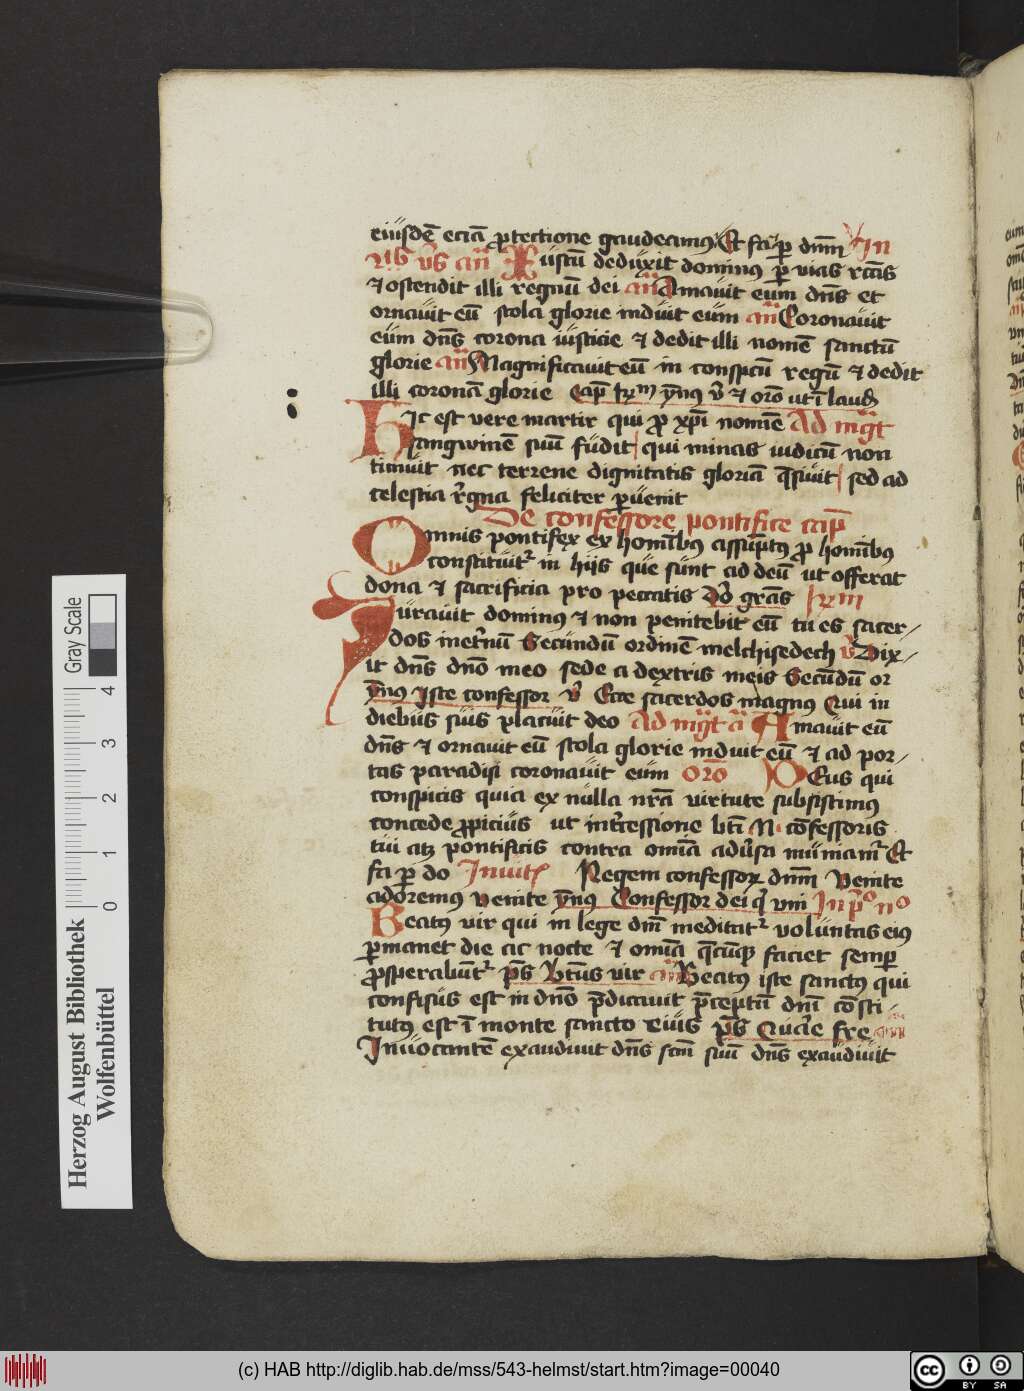 eiusdē eciā ꝓtectione gaudeamus Et fa ꝑ dnm̄ In
ijͣˢ vꝰs an̄ Iustū deduxit dominus ꝑ vias rc̄as
⁊ ostendit illi regnū dei an̄ Amauit eum dn̄s et
ornauit eū stola glorie induit eum an̄ Coronauit
eum dn̄s corona iusticie ⁊ dedit illi nomē sanctū
glorie an̄ Magnificauit eū in conspcū regū ⁊ dedit
illi coronā glorie Cap̄ ym̄nus v̄ ⁊ orō ut ī laud
Hic est vere martir qui ꝓ xp̄i nomīe Ad mgt̄
sangwinē suū fudit qui minas iudicū non
timuit nec terrene dignitatis gloriā q̄siuit sed ad
celestia rēgna feliciter ꝑuenit
De confessore pontifice cap̄
Omnis pontifex ex homībus assūptus ꝓ homībus
constituitᷣ in hijs que sunt ad deū ut offerat
dona ⁊ sacrificia pro peccatis Dō grās
Iurauit dominus ⁊ non penitebit eū tu es sacer-
dos inet̄nū Secundū ordinē melchisedech v̄ Dix-
it dn̄s dnō meo sede a dextris meis Secūdū or
ym̄nus Iste confessor v̄ Ecce sacerdos magnus Qui in
diebus suis placuit deo Ad mgt̄ an̄ Amauit eū
dn̄s ⁊ ornauit eū stola glorie induit eū ⁊ ad por-
tas paradisi coronauit eum orō Deus qui
conspicis quia ex nulla nrā virtute subsistimus
concede ꝓpicius ut int̄cessione bt̄i N· cōfessoris
tui atqꝫ pontificis contra omīa adūsa muniamᷣ Et
fa ꝑ do Inuit Regem confessorꝝ dnm̄ Venite
adoremus venite ym̄nus Confessor dei qͥ vm̄ In pͦ nͦ
Beatus vir qui in lege dn̄i meditatᷣ voluntas eius
ꝑmanet die ac nocte ⁊ omīa q̄cūqꝫ faciet semꝑ
ꝓsperabūtᷣ ps̄ Bt̄us vir an̄ Beatus iste sanctus qui
confisus est in dnō p̄dicauit p̄ceptū dn̄i cōsti-
tutus est ī monte sancto eius ps̄ Quar̄e fre an̄
Inuocantē exaudiuit dn̄s scm̄ suū dn̄s exaudiuit
Herzog August Bibliothek
Wolfenbüttel
Gray Scale
0 1 2 3 4
(c) HAB http://diglib.hab.de/mss/543-helmst/start.htm?image=00040
cc BY SA